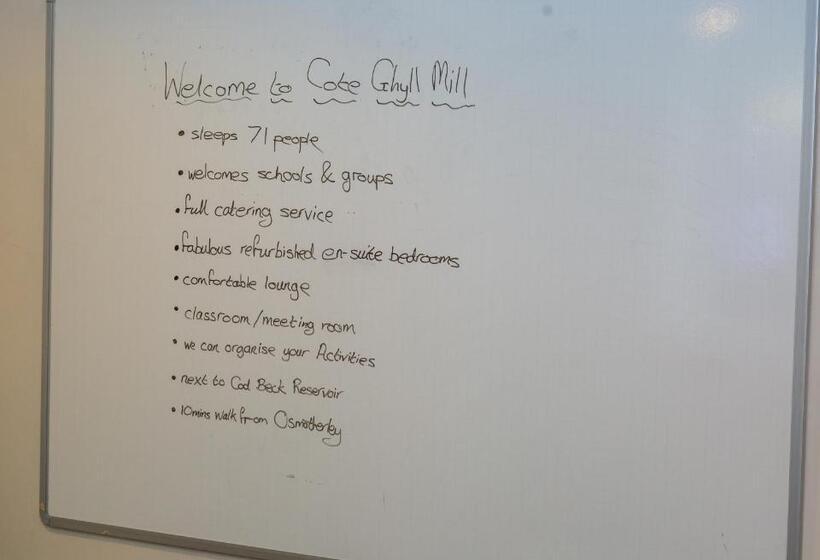 Welcome to Cote Ghyll Mill
• sleeps 71 people
• welcomes schools & groups
• full catering service
• fabulous refurbished en-suite bedrooms
• comfortable lounge
• classroom/meeting room
• we can organise your Activities
• next to Cod Beck Reservoir
• 10mins walk from Osmotherley